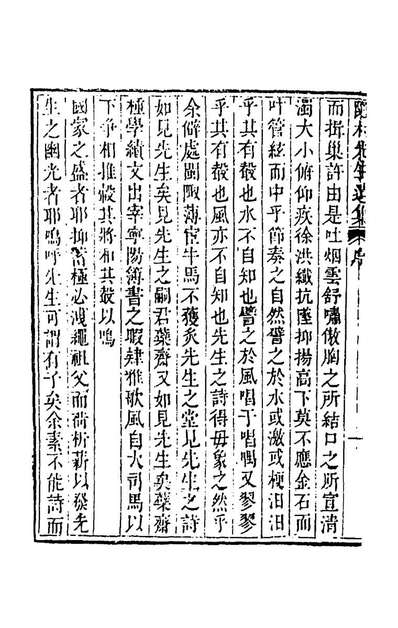 先生遺集 序
而揖巢許由是吐烟雲舒嘯傲胸之所結口之所宣清
濁大小俯仰疾徐洪纖抗墜抑揚高下莫不應金石而
叶管絃而中乎節奏之自然譬之於水或激或梗汨汨
乎其有聲也水不自知也譬之於風唱于唱喁又翏翏
乎其有聲也風亦不自知也先生之詩得毋象之然乎
余僻處閩陬薄宦牛馬不獲炙先生之堂見先生之詩
如見先生矣見先生之嗣君藥齋又如見先生矣藥齋
種學績文出宰寧陽簿書之暇肄雅砍風自大司馬以
下爭相推轂其將和其聲以鳴
國家之盛者耶抑 極必淺繩祖父而荷析薪以發先
生之幽光者耶嗚呼先生可謂有子矣余素不能詩而